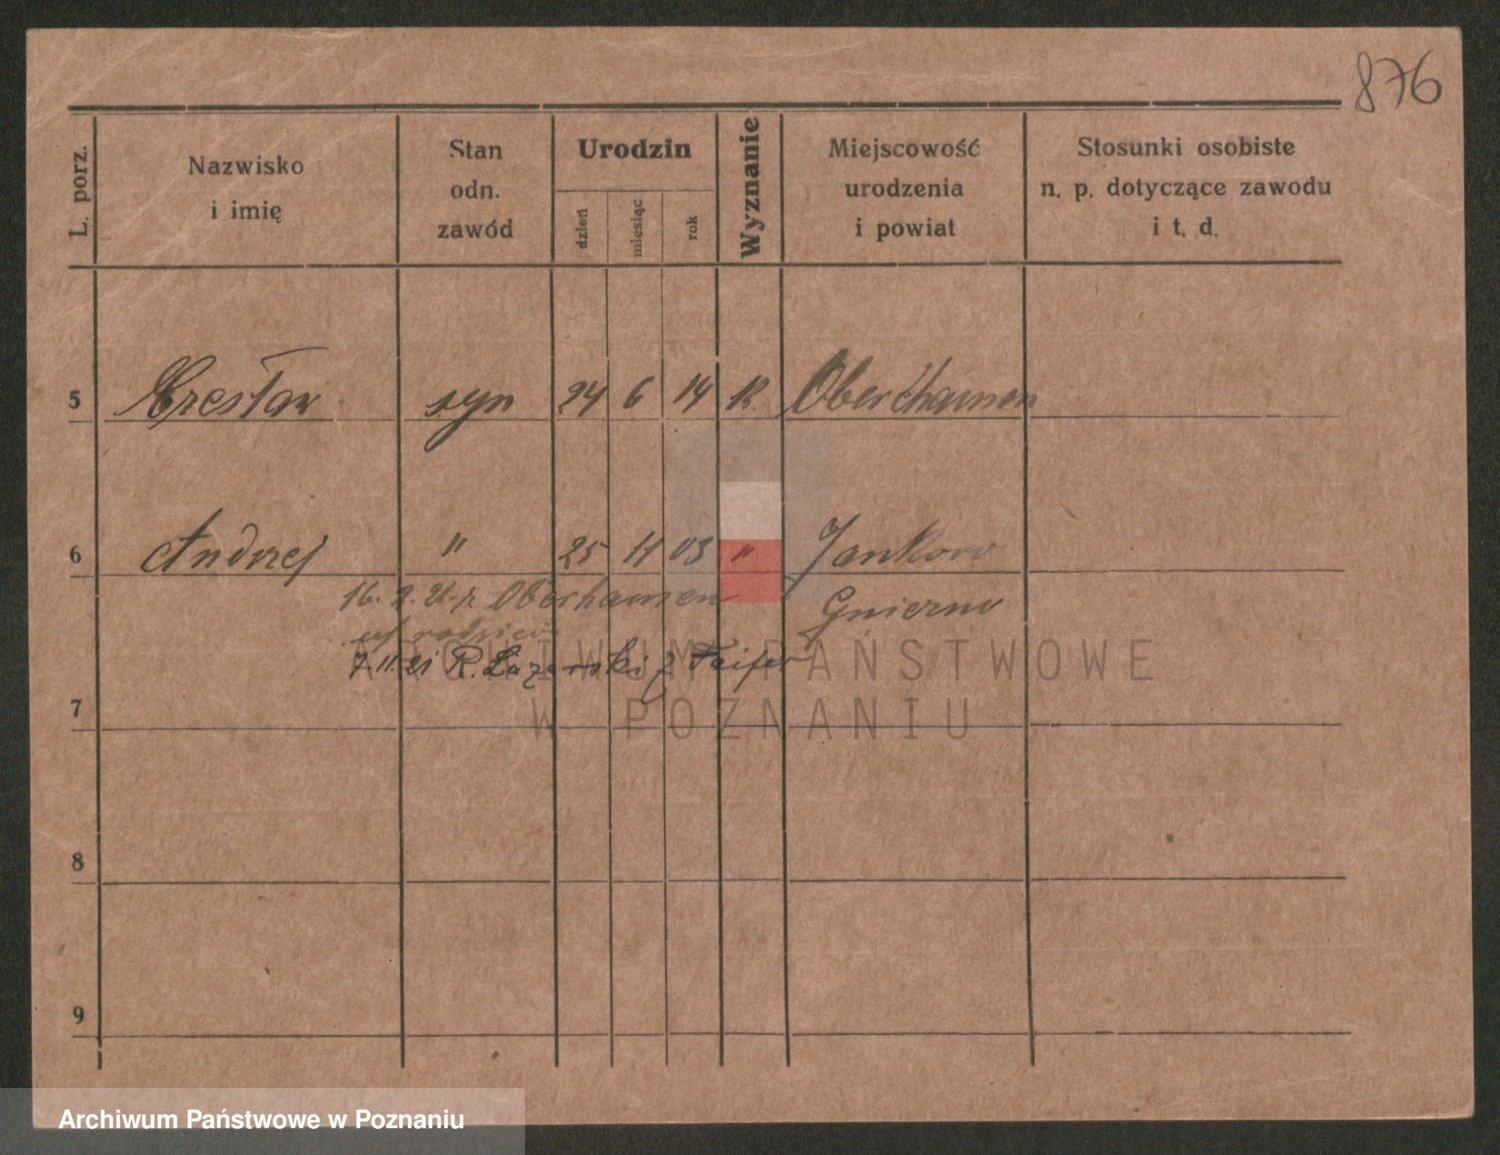 876
L. porz.
Nazwisko
i imię
Stan
odn.
zawód
Urodzin
dzień
miesiąc
rok
Wyznanie
Miejscowość
urodzenia
i powiat
Stosunki osobiste
n. p. dotyczące zawodu
i t. d.
5 syn 24 6 14 K.
6 Andrzej " 25 11 03 " Jankowo
16. 2. 21. Oberhausen Gniezno
7.11.21 R. Łazarski
7
8
9
ARCHIWUM PAŃSTWOWE
W POZNANIU
Archiwum Państwowe w Poznaniu